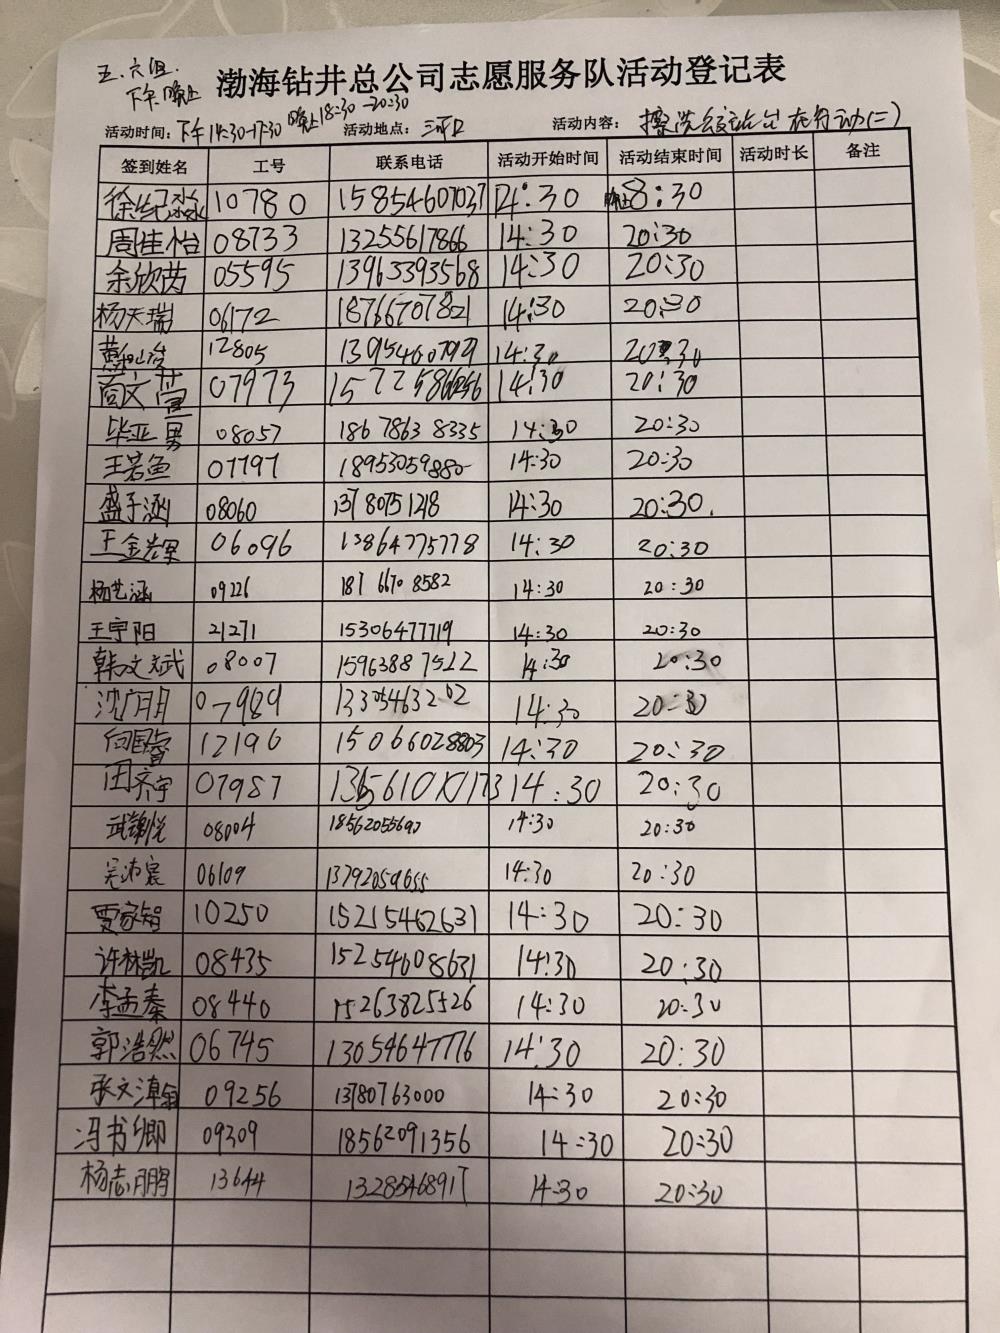 五.六组.
下午.晚上
渤海钻井总公司志愿服务队活动登记表
晚上18:30-20:30
活动时间：下午14:30-17:30 活动地点：三河口 活动内容：擦洗公交站台在行动(二)
签到姓名 工号 联系电话 活动开始时间 活动结束时间 活动时长 备注
徐纪淼 10780 15854607037 14:30 晚上8:30
周佳怡 08733 13255617866 14:30 20:30
余欣芮 05595 13963393568 14:30 20:30
杨天瑞 06172 18766707821 14:30 20:30
12805 13954607929 14:30 20:30
尚文萱 07973 14:30 20:30
毕亚男 08057 186 7863 8335 14:30 20:30
王若鱼 07797 18953059880 14:30 20:30
盛子涵 08060 13780751218 14:30 20:30.
王金
06096 13864775778 14:30 20:30
杨艺涵 09226 187 6670 8582 14:30 20:30
王宇阳 21271 15306477719 14:30 20:30
韩文斌 08007 15963887522 14:30 20:30
沈明月 07989 13305463202 14:30 20:30
12196 15066028803 14:30 20:30
田齐宇 07987 14:30 20:30
武锦悦 08004 18562055690 14:30 20:30
吴沛宸 06109 13792059655 14:30 20:30
贾家智 10250 15215462631 14:30 20:30
许林凯 08435 15254608631 14:30 20:30
李孟秦 08440 15263825526 14:30 20:30
郭浩然 06745 13054647776 14:30 20:30
张文 09256 13780763000 14:30 20:30
冯书卿 09309 18562091356 14:30 20:30
杨志鹏 13644 13285468917 14:30 20:30